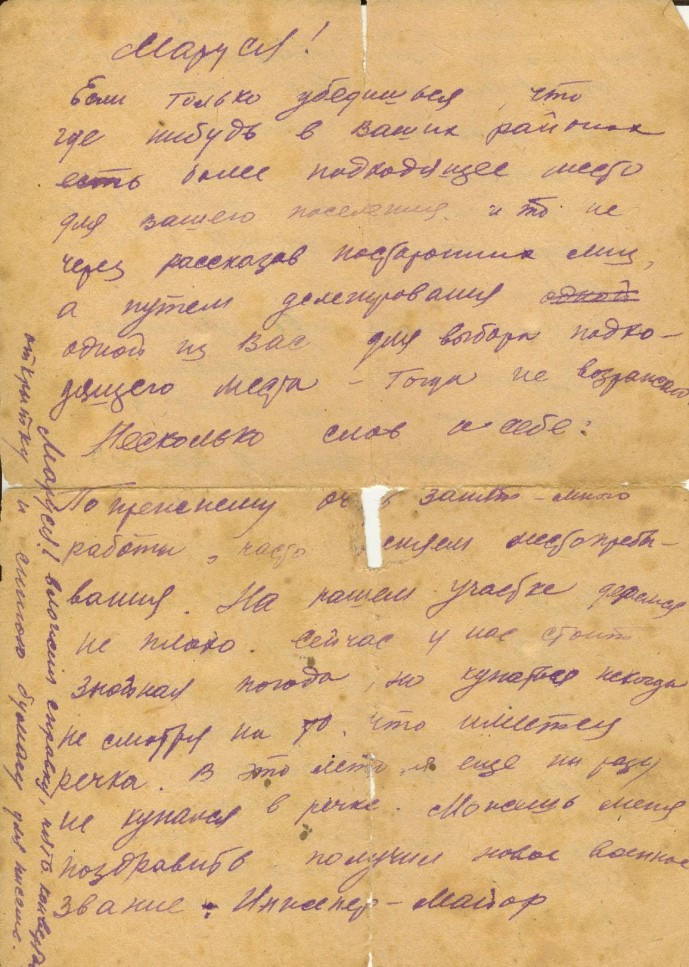 Маруся!
Если только убедишься, что
где нибудь в ваших районах
есть более подходящее место
для вашего поселения и то не
через рассказов посторонних лиц,
а путем делегирования одной
одной из Вас для выбора подхо-
дящего места – тогда не возражаю
Несколько слов о себе:
По прежнему оч занят – много
работы, часто меняем местопребы-
вания. На нашем участке деремся
не плохо. Сейчас у нас стоит
знойная погода, но купаться некогда
не смотря на то, что имеется
речка. В это лето я еще ни разу
не купался в речке. Можешь меня
поздравить получил новое военное
звание – Инженер-Майор
Маруся! вложил справку, пять конвертов
открытку и синюю бумагу для письма.